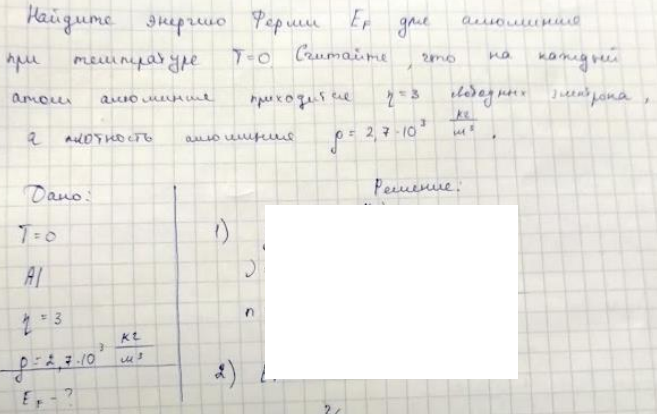 Найдите энергию Ферми E_F для алюминия
при температуре T=0. Считайте, что на каждый
атом алюминия приходится η=3 свободных электрона,
а плотность алюминия ρ = 2,7·10³ кг/м³.
Дано:
T=0
Al
η = 3
ρ = 2,7·10³ кг/м³
E_F - ?
Решение:
1)
n
2)